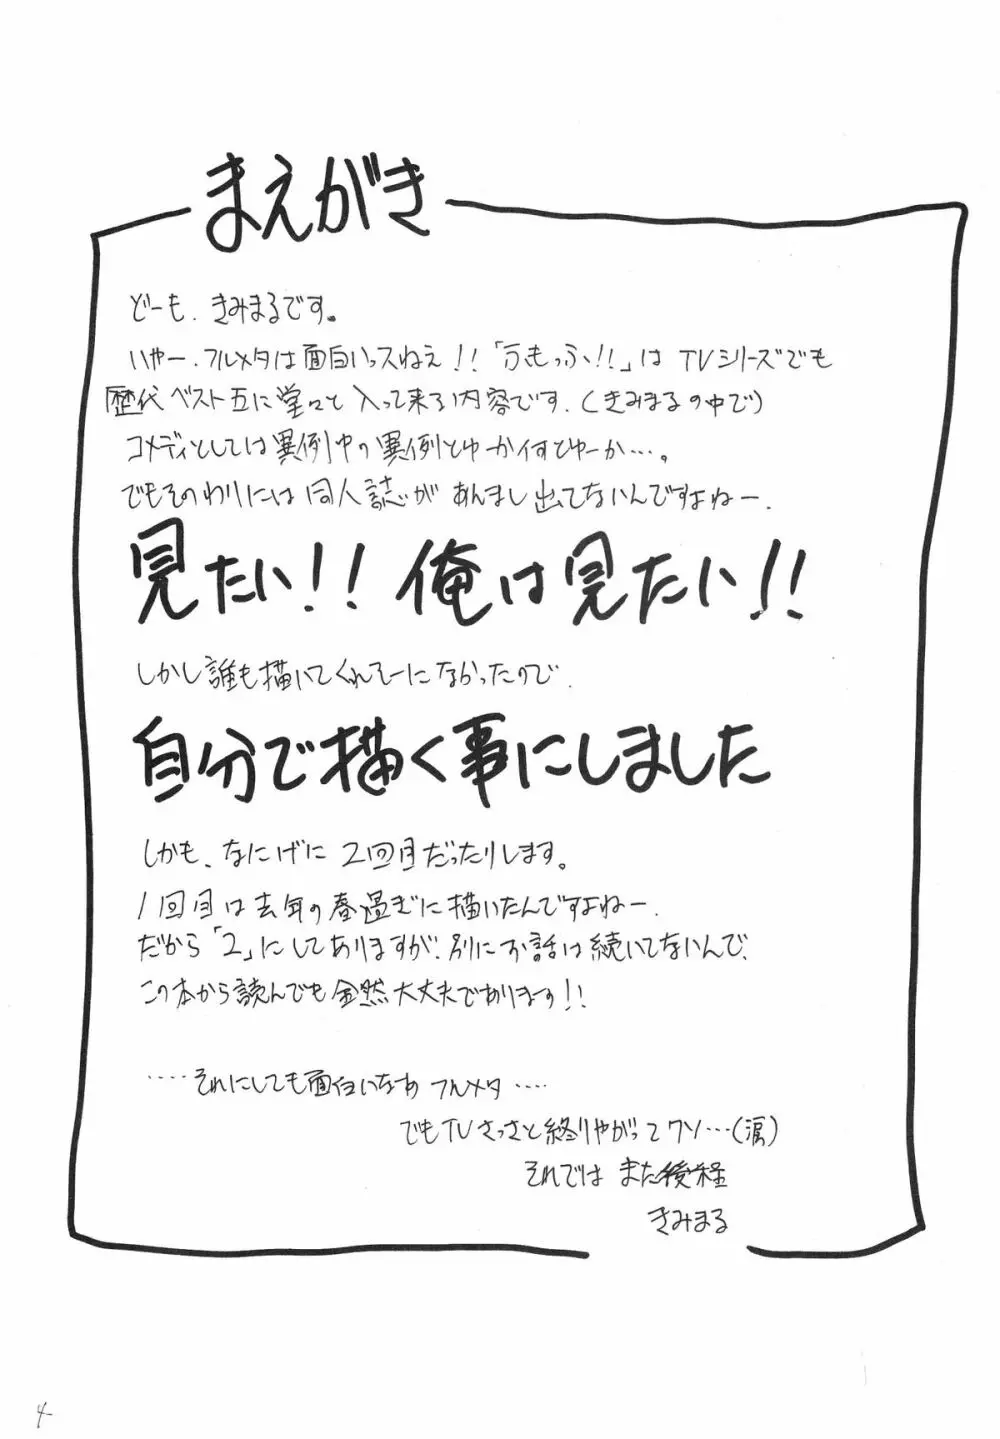 まえがき
どーも、きみまるです。
いやー、フルメタは面白いっスねえ!!「ふもっふ!!」はTVシリーズでも
歴代ベスト五に堂々と入って来る内容です。(きみまるの中で)
コメディとしては異例中の異例とゆーか何とゆーか…。
でもそのわりには同人誌があんまし出てないんですよねー。
見たい!! 俺は見たい!!
しかし誰も描いてくれそーになかったので、
自分で描く事にしました
しかも、なにげに2回目だったりします。
1回目は去年の春過ぎに描いたんですよねー。
だから「2」にしてありますが、別にお話は続いてないんで、
この本から読んでも全然大丈夫であります!!
……それにしても面白いなあ フルメタ……
でもTVさっさと終りやがってクソ…(涙)
それでは また後程
きみまる
4